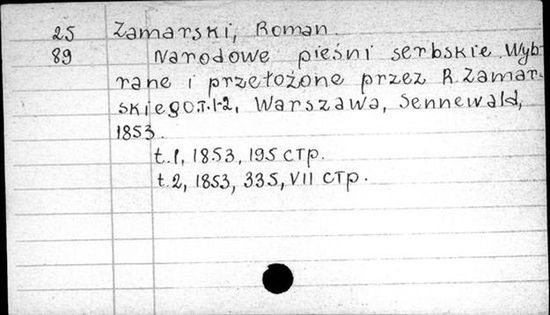 25 Zamarski, Roman.
89 Narodowe pieśni serbskie. Wyb-
rane i przełożone przez R. Zamar-
skiego. T. 1-2, Warszawa, Sennewald,
1853.
t. 1, 1853, 195 стр.
t. 2, 1853, 335, VII стр.